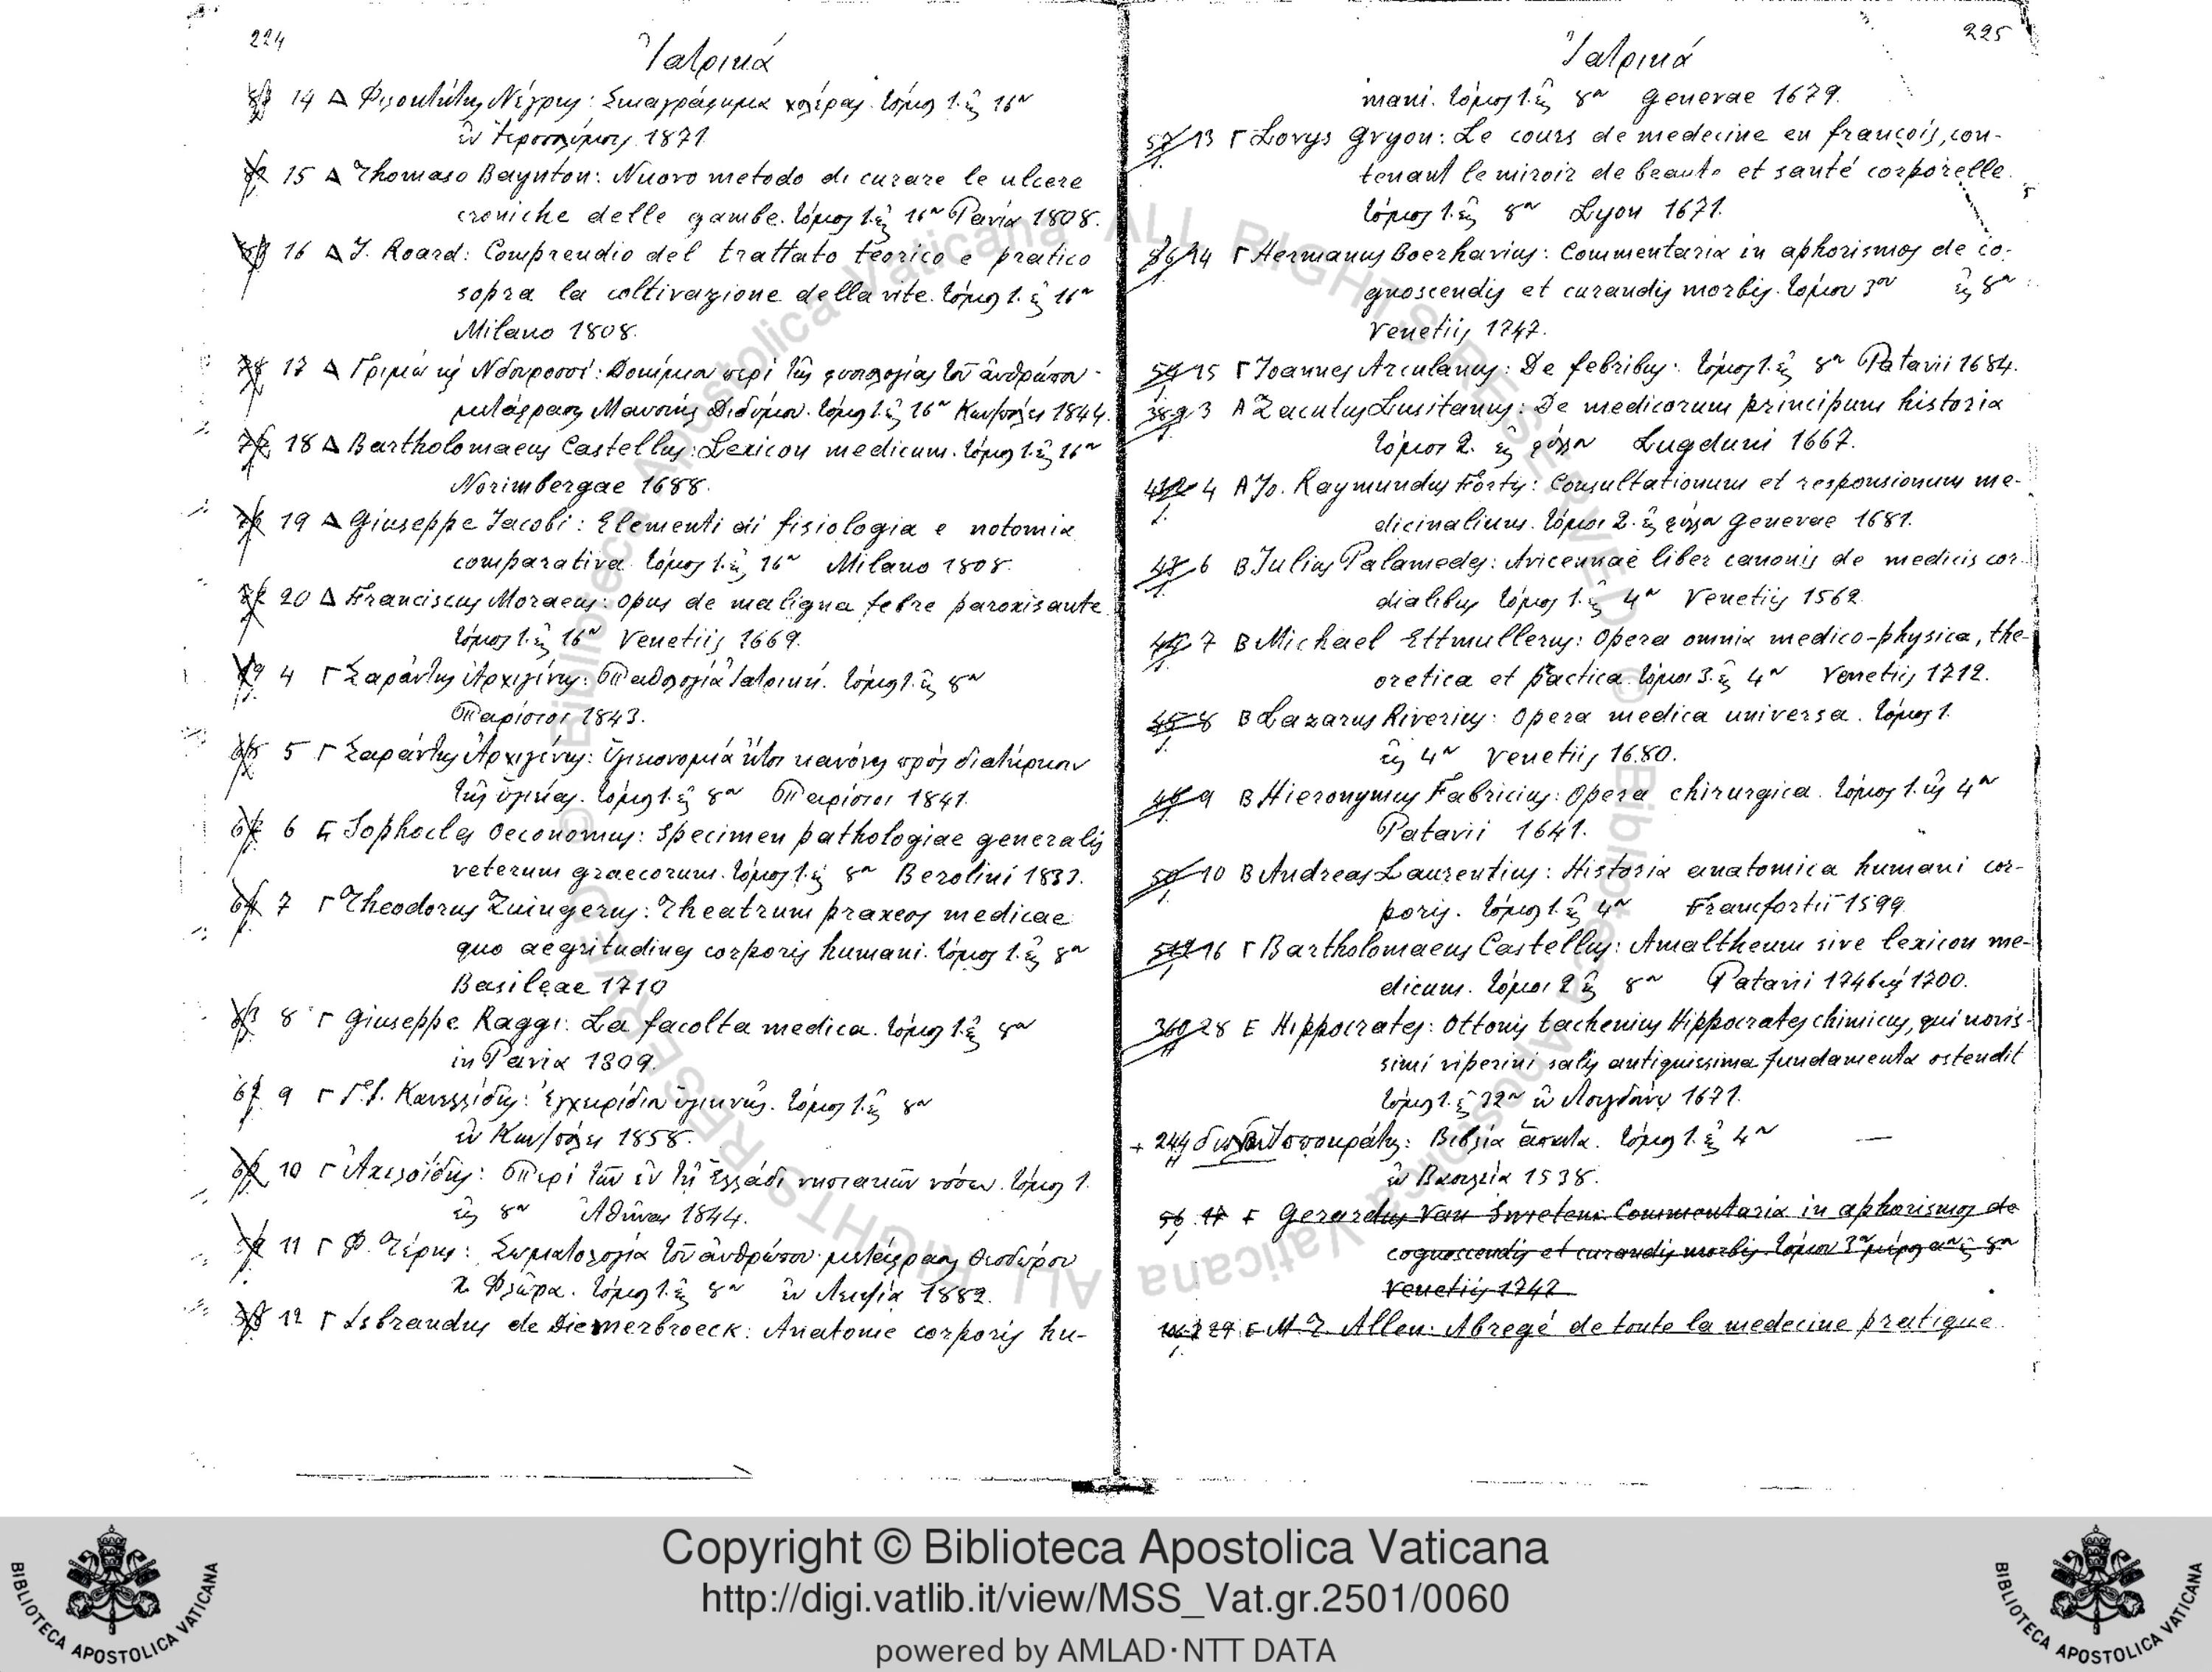 224
Ἰατρικά
14 Δ Νέγρης: Σκιαγράφημα χολέρας. τόμος 1. εἰς 16ον
ἐν Ἱεροσολύμοις 1871
15 Δ Thomaso Baynton: Nuovo metodo di curare le ulcere
croniche delle gambe. τόμος 1. εἰς 16ον Pavia 1808.
16 Δ J. Roard: Comprendio del trattato teorico e pratico
sopra la coltivazione della vite. τόμος 1. εἰς 16ον
Milano 1808.
17 Δ Γριμώ Δοκίμιον περὶ τῆς φυσιολογίας τοῦ ἀνθρώπου
μετάφρασις Διδύμου. τόμος 1. εἰς 16ον Κων/πόλει 1844.
18 Δ Bartholomaeus Castellus: Lexicon medicum. τόμος 1. εἰς 16ον
Norimbergae 1688.
19 Δ Giuseppe Jacobi: Elementi di fisiologia e notomia
comparativa. τόμος 1. εἰς 16ον Milano 1808.
20 Δ Franciscus Moraeus: Opus de maligna febre paroxisante
τόμος 1. εἰς 16ον Venetiis 1669.
4 Γ Σαράντης Ἀρχιγένης: Παθολογία Ἰατρική. τόμος 1. εἰς 8ον
Παρίσιοι 1843.
5 Γ Σαράντης Ἀρχιγένης: Ὑγιεονομία ἤτοι κανόνες πρὸς διατήρησιν
τῆς ὑγιείας. τόμος 1. εἰς 8ον Παρίσιοι 1841.
6 Γ Sophocles Oeconomus: Specimen pathologiae generalis
veterum graecorum. τόμος 1. εἰς 8ον Berolini 1833.
7 Γ Theodorus Zuingerus: Theatrum praxeos medicae
quo aegritudines corporis humani. τόμος 1. εἰς 8ον
Basileae 1710
8 Γ Giuseppe Raggi: La facolta medica. τόμος 1. εἰς 8ον
in Pavia 1809.
9 Γ ἐγχειρίδιον ὑγιεινῆς. τόμος 1. εἰς 8ον
ἐν Κων/πόλει 1858.
10 Γ Περὶ τῶν ἐν τῇ Ἑλλάδι νόσων. τόμος 1.
εἰς 8ον Ἀθῆναι 1844.
11 Γ Σωματολογία τοῦ ἀνθρώπου μετάφρασις Θεοδώρου
τόμος 1. εἰς 8ον ἐν Λειψίᾳ 1882.
12 Γ Isbrandus de Diemerbroeck: Anatome corporis hu-
225
Ἰατρικά
mani. τόμος 1. εἰς 8ον Genevae 1679.
57 13 Γ Lovys Gvyon: Le cours de medecine en françois, con-
tenant le miroir de beaute et santé corporelle.
τόμος 1. εἰς 8ον Lyon 1671.
14 Γ Hermanus Boerhavius: Commentaria in aphorismos de co-
gnoscendis et curandis morbis. τόμου 3ου εἰς 8ον
Venetiis 1747.
15 Γ Ioannes Arculanus: De febribus. τόμος 1. εἰς 8ον Patavii 1684.
3 Α Zacutus Lusitanus: De medicorum principum historia
τόμοι 2. εἰς φύλλον Lugduni 1667.
4 Α Jo. Raymundus Fortis: Consultationum et responsionum me-
dicinalium. τόμοι 2. εἰς φύλλον Genevae 1681.
6 Β Iulius Palamedes: Avicennae liber canonis de medicis cor-
dialibus τόμος 1. εἰς 4ον Venetiis 1562
7 Β Michael Ettmullerus: Opera omnia medico-physica, the-
oretica et practica. τόμοι 3. εἰς 4ον Venetiis 1712.
8 Β Lazarus Riverius: Opera medica universa. τόμος 1.
εἰς 4ον Venetiis 1680.
9 Β Hieronymus Fabricius: Opera chirurgica. τόμος 1. εἰς 4ον
Patavii 1641.
50 10 Β Andreas Laurentius: Historia anatomica humani cor-
poris. τόμος 1. εἰς 4ον Francfortii 1599
16 Γ Bartholomaeus Castellus: Amaltheum sive lexicon me-
dicum. τόμοι 2 εἰς 8ον Patavii 1746 καὶ 1700.
360 28 Ε Hippocrates: Ottonis tachenius Hippocrates chimicus, qui novis-
simi viperini salis antiquissima fundamenta ostendit
τόμος 1. εἰς 12ον ἐν Λουγδούνῳ 1671.
+ 244 Ἱπποκράτης: Βιβλία ἅπαντα. τόμος 1. εἰς 4ον —
ἐν Βασιλείᾳ 1538.
56 17 Γ Gerardus Van Swieten: Commentaria in aphorismos de
cognoscendis et curandis morbis. τόμου 3ου μέρος αον εἰς 8ον
Venetiis 1747
29 Ε M. J. Allen: Abregé de toute la medecine pratique.
Copyright © Biblioteca Apostolica Vaticana
http://digi.vatlib.it/view/MSS_Vat.gr.2501/0060
powered by AMLAD·NTT DATA
BIBLIOTECA APOSTOLICA VATICANA
BIBLIOTECA APOSTOLICA VATICANA